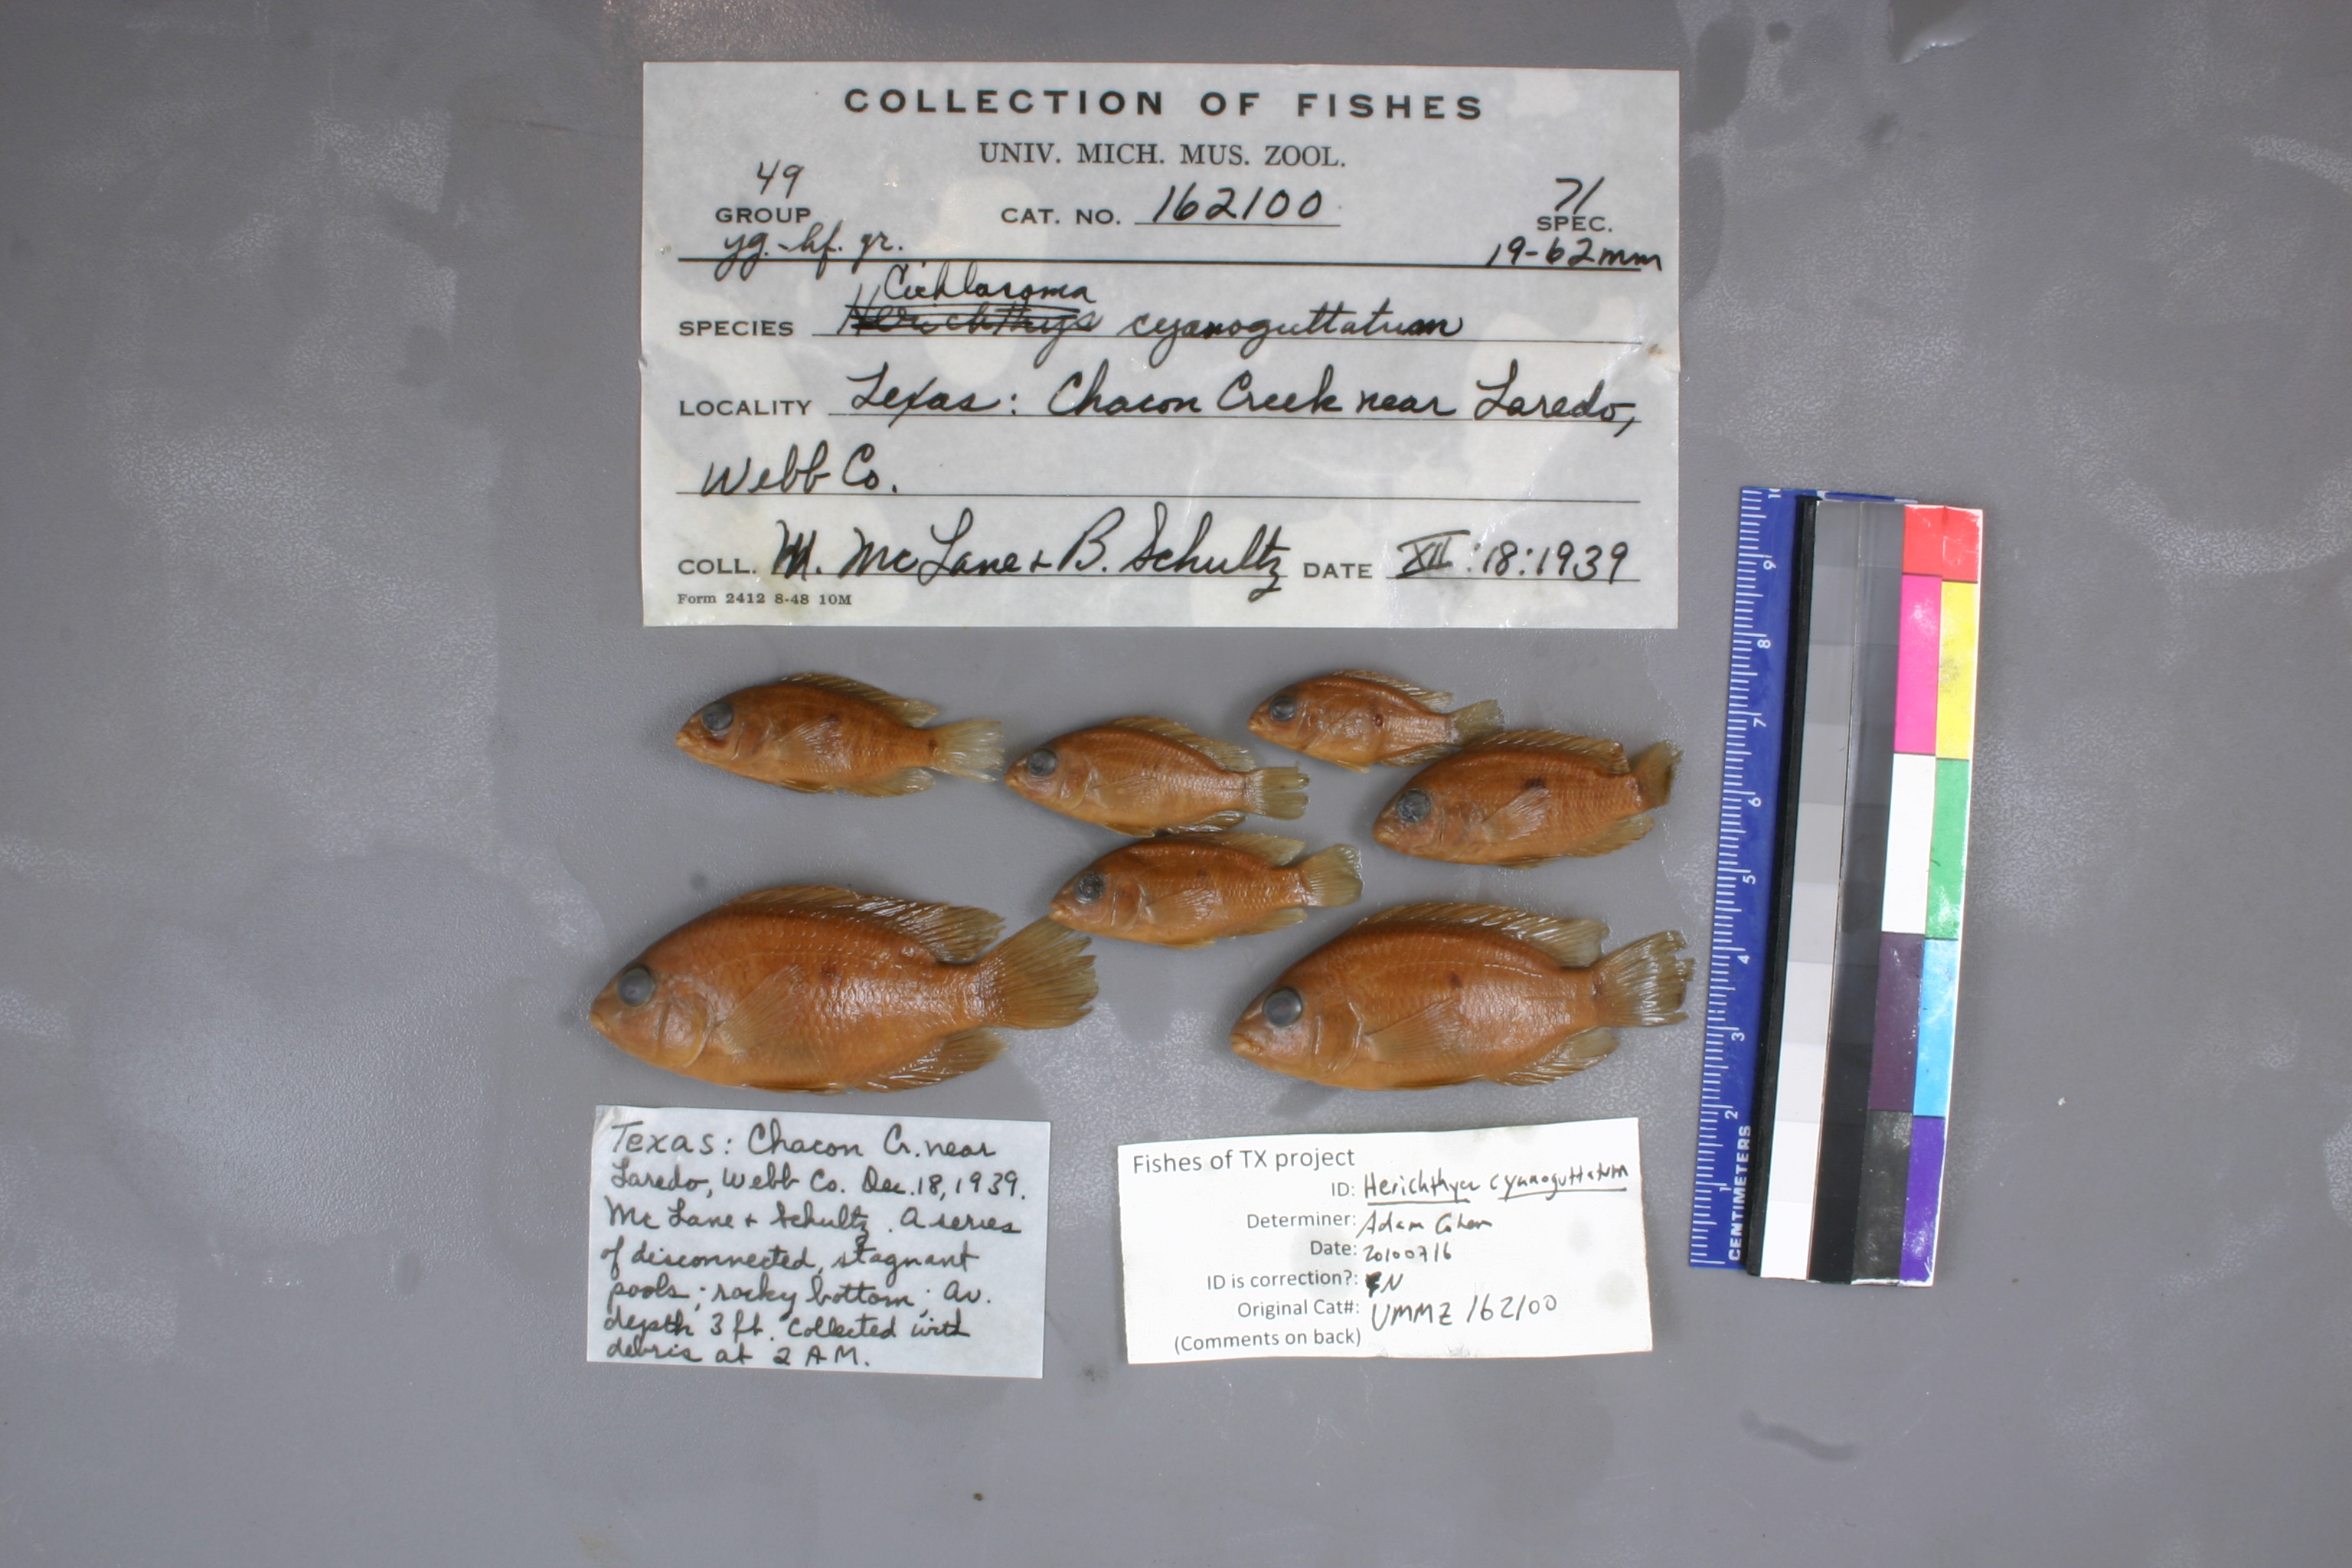 COLLECTION OF FISHES
UNIV. MICH. MUS. ZOOL.
49
GROUP
CAT. NO. 162100
71
SPEC.
yg.-hf. gr.
19-62mm
Cichlasoma
SPECIES Herichthys cyanoguttatum
LOCALITY Texas: Chacon Creek near Laredo,
Webb Co.
COLL. M. McLane + B. Schultz DATE XII:18:1939
Form 2412 8-48 10M
Texas: Chacon Cr. near
Laredo, Webb Co. Dec. 18, 1939.
McLane + Schultz. A series
of disconnected, stagnant
pools; rocky bottom; av.
depth 3 ft. Collected with
debris at 2 A.M.
Fishes of TX project
ID: Herichthys cyanoguttatum
Determiner: Adam Cohen
Date: 20100716
ID is correction?: N
Original Cat#: UMMZ 162100
(Comments on back)
10
9
8
7
6
5
4
3
2
1
CENTIMETERS